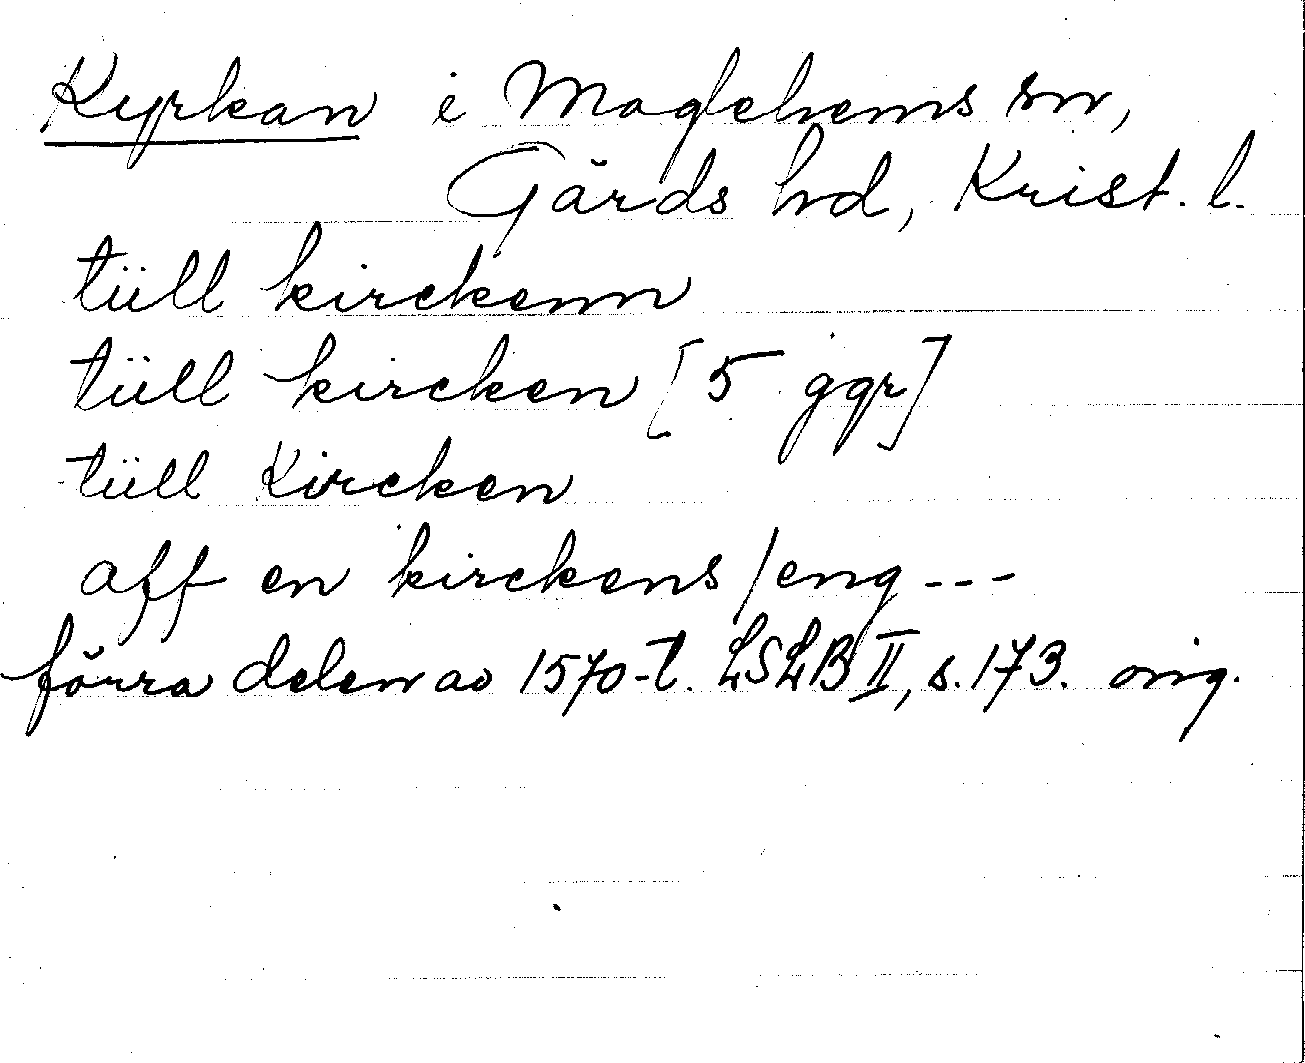 Kyrkan i Maglehems sn,
Gärds hd, Krist. l.
tüll kirckenn
tüll kircken [5 ggr]
tüll Kircken
aff en kirckens / eng ---
förra delen av 1570-t. LSLB II, s. 173. orig.